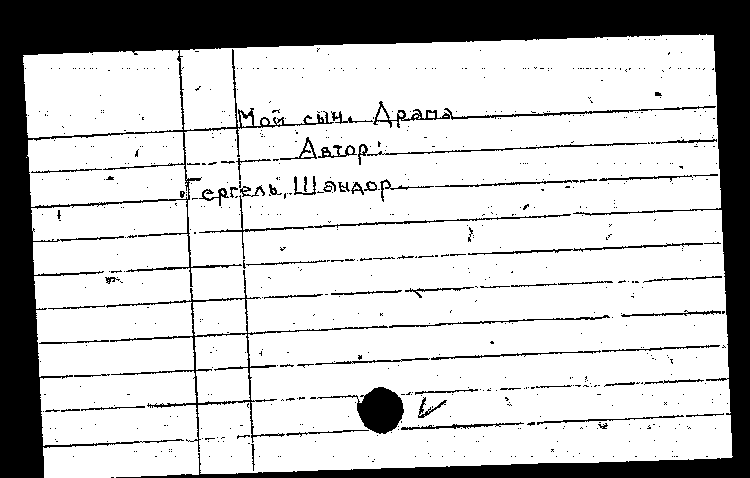 Мой сын. Драма
Автор:
Гергель, Шандор.